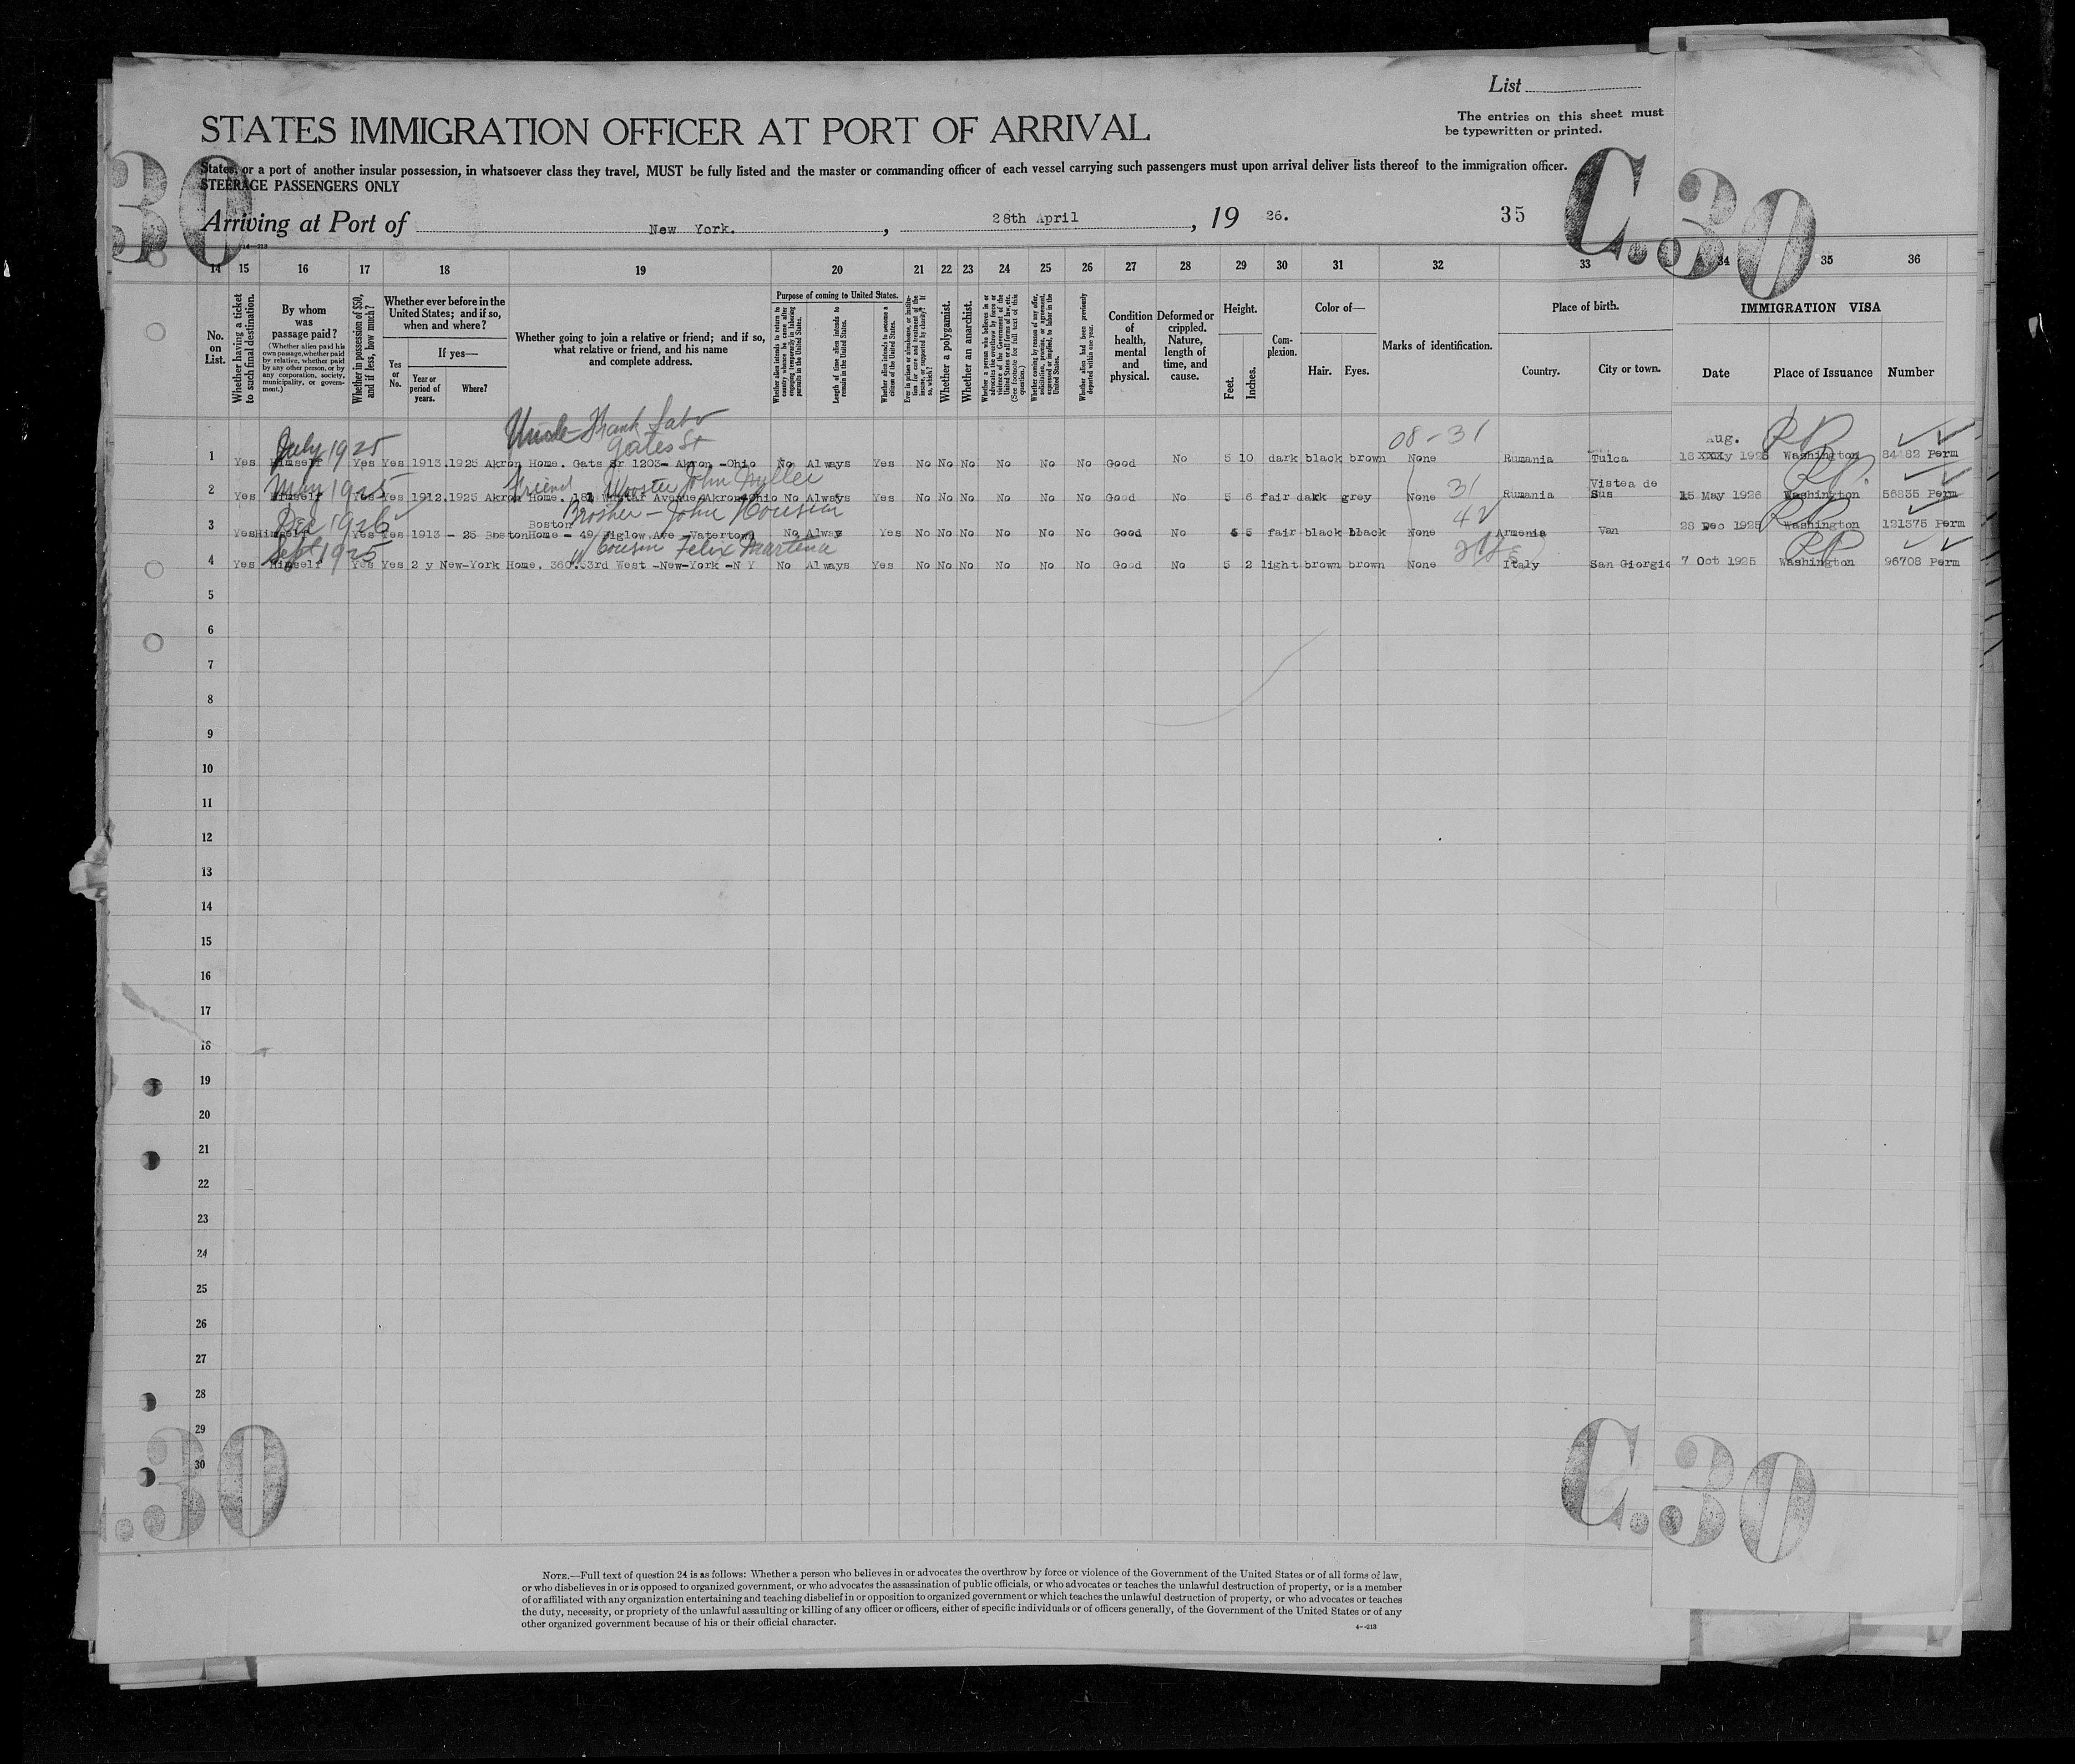 List
The entries on this sheet must
be typewritten or printed.
STATES IMMIGRATION OFFICER AT PORT OF ARRIVAL
States, or a port of another insular possession, in whatsoever class they travel, MUST be fully listed and the master or commanding officer of each vessel carrying such passengers must upon arrival deliver lists thereof to the immigration officer.
STEERAGE PASSENGERS ONLY
30
C.30
Arriving at Port of New York. , 28th April , 19 26. 35
14 15 16 17 18 19 20 21 22 23 24 25 26 27 28 29 30 31 32 33 34 35 36
No. on List.
Whether having a ticket to such final destination.
By whom was passage paid?
(Whether alien paid his own passage, whether paid by relative, whether paid by any other person, or by any corporation, society, municipality, or government.)
Whether in possession of $50, and if less, how much?
Whether ever before in the United States; and if so, when and where?
Yes or No.
If yes—
Year or period of years.
Where?
Whether going to join a relative or friend; and if so, what relative or friend, and his name and complete address.
Purpose of coming to United States.
Length of time alien intends to remain in the United States.
Whether alien intends to become a citizen of the United States.
Whether a polygamist.
Whether an anarchist.
Condition of health, mental and physical.
Deformed or crippled. Nature, length of time, and cause.
Height.
Feet.
Inches.
Complexion.
Color of—
Hair.
Eyes.
Marks of identification.
Place of birth.
Country.
City or town.
IMMIGRATION VISA
Date
Place of Issuance
Number
July 1925 Uncle Frank Gates St 08-31 Aug. RP
1 Yes Himself Yes Yes 1913.1925 Akron Home. Gats Sr 1203- Akron -Ohio No Always Yes No No No No No No Good No 5 10 dark black brown None Rumania Tulca 1925 Washington Perm
May 1925 Friend Wooster John Miller 31 RP.
2 Yes Himself Yes Yes 1912.1925 Akron Home. Avenue Akron Ohio No Always Yes No No No No No No Good No 5 6 fair dark grey None Rumania Vistea de Sus 15 May 1926 Washington 56835 Perm
Dec 1926 Brother - John 42 RP
3 Yes Himself Yes Yes 1913 - 25 Boston Home - 49 Biglow Ave Vatertown Boston No Alway Yes No No No No No No Good No 5 5 fair black black None Armenia Van 28 Dec 1925 Washington 121375 Perm
Sept 1925 Cousin Felix Martena RP
4 Yes Himself Yes Yes 2 y New-York Home. 360.53rd West -New-York -N Y No Always Yes No No No No No No Good No 5 2 light brown brown None Italy San Giorgio 7 Oct 1925 Washington 96708 Perm
5
6
7
8
9
10
11
12
13
14
15
16
17
18
19
20
21
22
23
24
25
26
27
28
29
30
.30
C.30
NOTE.—Full text of question 24 is as follows: Whether a person who believes in or advocates the overthrow by force or violence of the Government of the United States or of all forms of law,
or who disbelieves in or is opposed to organized government, or who advocates the assassination of public officials, or who advocates or teaches the unlawful destruction of property, or is a member
of or affiliated with any organization entertaining and teaching disbelief in or opposition to organized government or which teaches the unlawful destruction of property, or who advocates or teaches
the duty, necessity, or propriety of the unlawful assaulting or killing of any officer or officers, either of specific individuals or of officers generally, of the Government of the United States or of any
other organized government because of his or their official character.